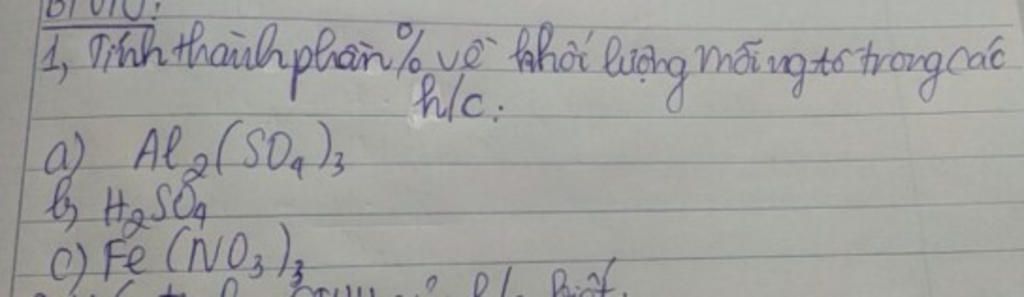 BTVN:
1, Tính thành phần % về khối lượng mỗi ngtố trong các
h/c:
a) Al2(SO4)3
b, H2SO4
c) Fe(NO3)3